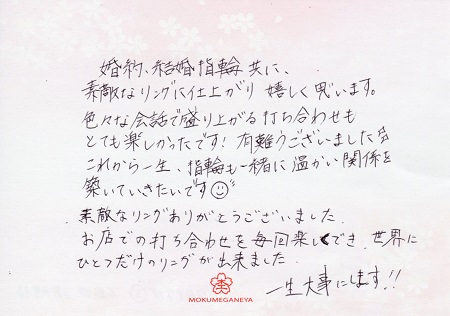 婚約、結婚指輪共に、
素敵なリングに仕上がり嬉しく思います。
色々な会話で盛り上がる打ち合わせも
とても楽しかったです！有難うございました
これから一生、指輪も一緒に温かい関係を
築いていきたいです
素敵なリングありがとうございました.
お店での打ち合わせを毎回楽しくでき、世界に
ひとつだけのリングが出来ました.
一生大事にします!!
MOKUMEGANEYA